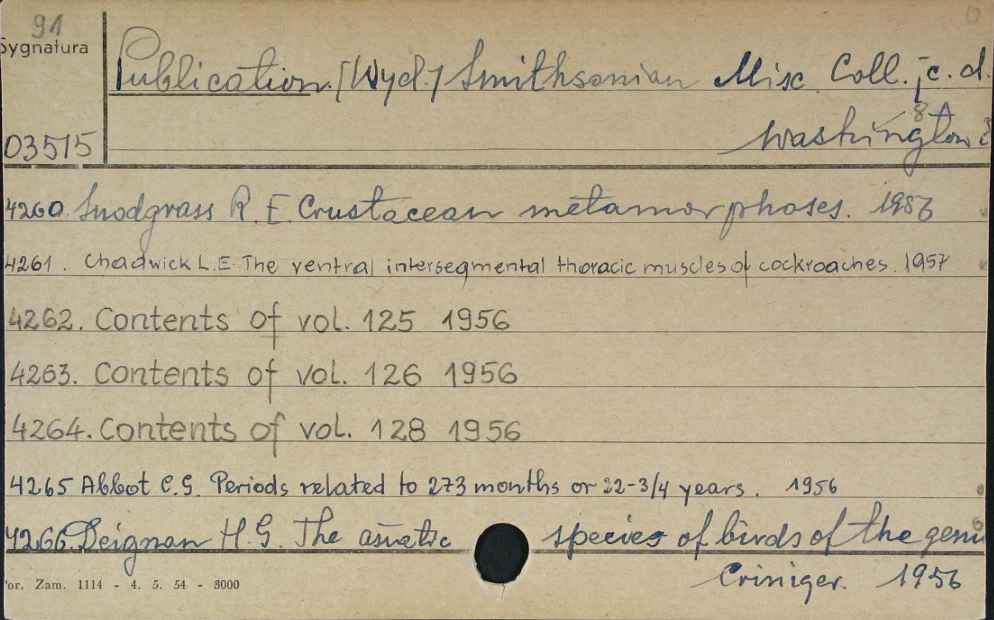 91
Sygnatura
Publication. [Wyd.] Smithsonian Misc. Coll. c. d.
8
03515
Washington
4260. Snodgrass R. E. Crustacean metamorphoses. 1956
4261. Chadwick L.E. The ventral intersegmental thoracic muscles of cockroaches. 1957
4262. Contents of vol. 125 1956
4263. Contents of vol. 126 1956
4264. Contents of vol. 128 1956
4265 Abbot C.G. Periods related to 273 months or 22-3/4 years. 1956
4266. Deignan H.G. The asiatic species of birds of the genu
Criniger. 1956
or. Zam. 1114 - 4. 5. 54 - 3000